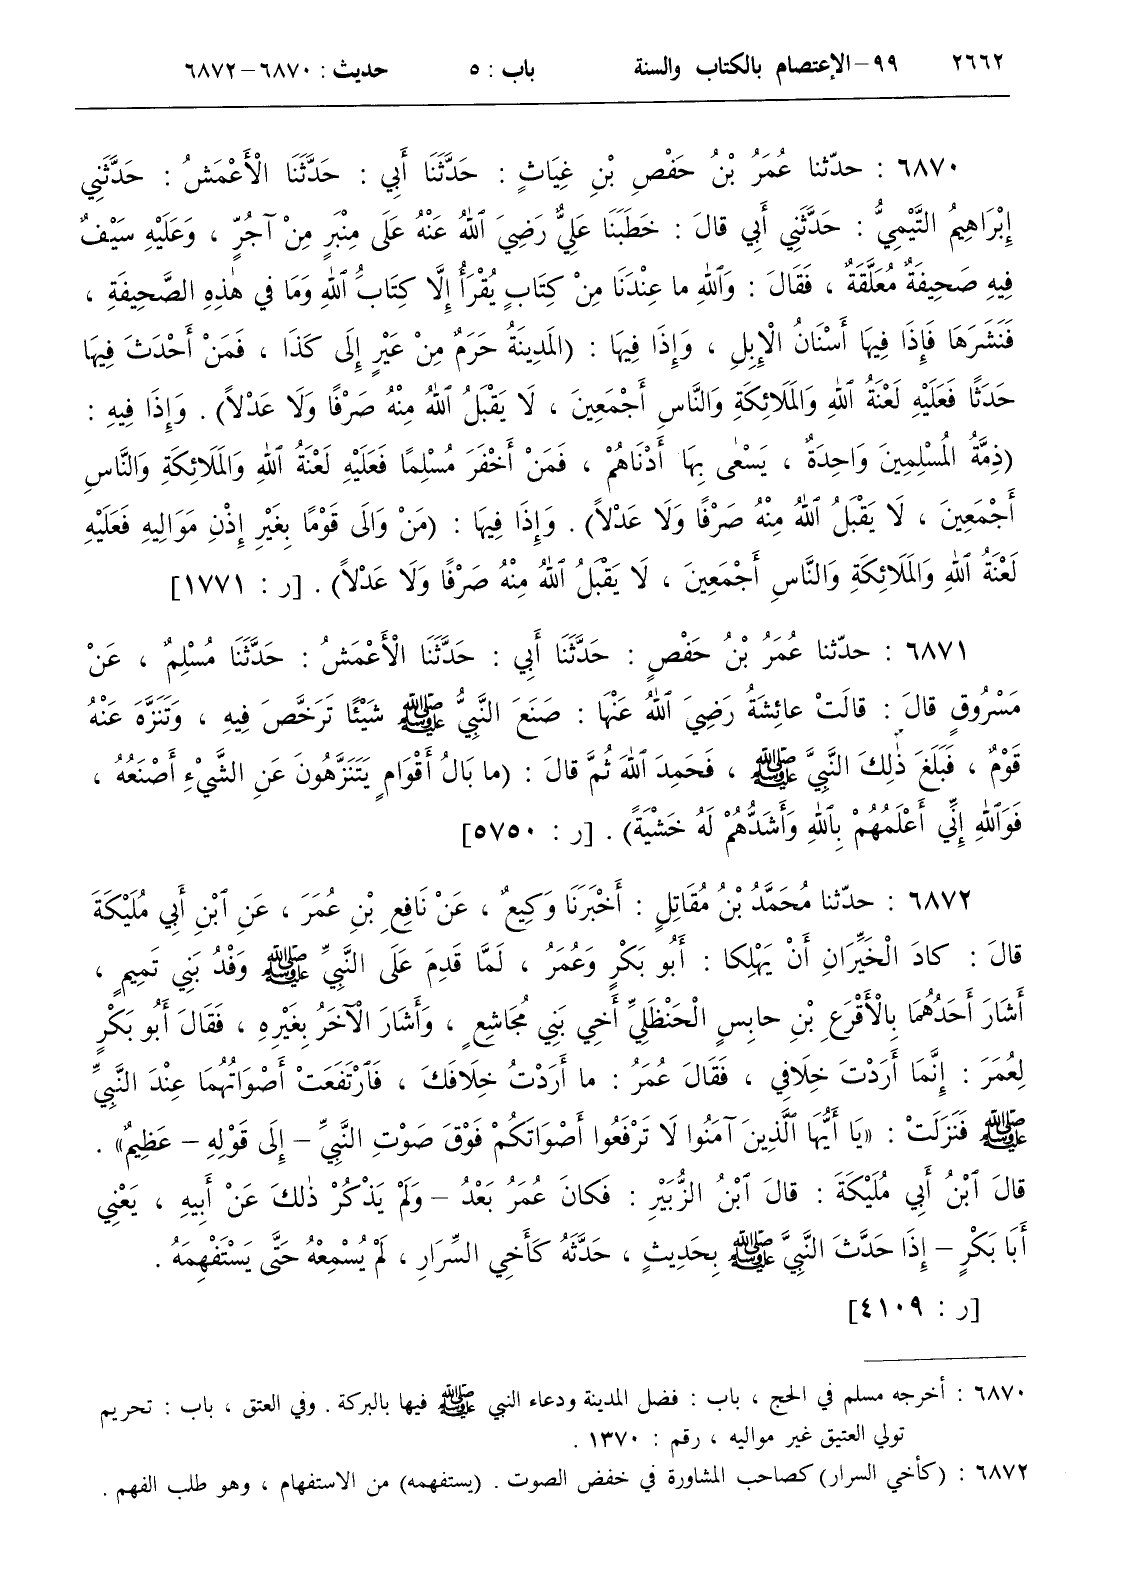 ٢٦٦٢ ٩٩-الإعتصام بالكتاب والسنة باب : ٥ حديث : ٦٨٧٠-٦٨٧٢
٦٨٧٠ : حدّثنا عُمَرُ بْنُ حَفْصِ بْنِ غِيَاثٍ : حَدَّثَنَا أَبِي : حَدَّثَنَا الْأَعْمَشُ : حَدَّثَنِي
إِبْرَاهِيمُ التَّيْمِيُّ : حَدَّثَنِي أَبِي قالَ : خَطَبَنَا عَلِيٌّ رَضِيَ ٱللهُ عَنْهُ عَلَى مِنْبَرٍ مِنْ آجُرٍّ ، وَعَلَيْهِ سَيْفٌ
فِيهِ صَحِيفَةٌ مُعَلَّقَةٌ ، فَقَالَ : وَٱللهِ ما عِنْدَنَا مِنْ كِتَابٍ يُقْرَأُ إِلَّا كِتَابُ ٱللهِ وَمَا فِي هٰذِهِ الصَّحِيفَةِ ،
فَنَشَرَهَا فَإِذَا فِيهَا أَسْنَانُ الْإِبِلِ ، وَإِذَا فِيهَا : (المَدِينَةُ حَرَمٌ مِنْ عَيْرٍ إِلَى كَذَا ، فَمَنْ أَحْدَثَ فِيهَا
حَدَثًا فَعَلَيْهِ لَعْنَةُ ٱللهِ وَالمَلَائِكَةِ وَالنَّاسِ أَجْمَعِينَ ، لَا يَقْبَلُ ٱللهُ مِنْهُ صَرْفًا وَلَا عَدْلاً) . وَإِذَا فِيهِ :
(ذِمَّةُ المُسْلِمِينَ وَاحِدَةٌ ، يَسْعٰى بِهَا أَدْنَاهُمْ ، فَمَنْ أَخْفَرَ مُسْلِمًا فَعَلَيْهِ لَعْنَةُ ٱللهِ وَالمَلَائِكَةِ وَالنَّاسِ
أَجْمَعِينَ ، لَا يَقْبَلُ ٱللهُ مِنْهُ صَرْفًا وَلَا عَدْلاً) . وَإِذَا فِيهَا : (مَنْ وَالَى قَوْمًا بِغَيْرِ إِذْنِ مَوَالِيهِ فَعَلَيْهِ
لَعْنَةُ ٱللهِ وَالمَلَائِكَةِ وَالنَّاسِ أَجْمَعِينَ ، لَا يَقْبَلُ ٱللهُ مِنْهُ صَرْفًا وَلَا عَدْلاً) . [ر : ١٧٧١]
٦٨٧١ : حدّثنا عُمَرُ بْنُ حَفْصٍ : حَدَّثَنَا أَبِي : حَدَّثَنَا الْأَعْمَشُ : حَدَّثَنَا مُسْلِمٌ ، عَنْ
مَسْرُوقٍ قالَ : قالَتْ عائِشَةُ رَضِيَ ٱللهُ عَنْهَا : صَنَعَ النَّبِيُّ ﷺ شَيْئًا تَرَخَّصَ فِيهِ ، وَتَنَزَّهَ عَنْهُ
قَوْمٌ ، فَبَلَغَ ذٰلِكَ النَّبِيَّ ﷺ ، فَحَمِدَ ٱللهَ ثُمَّ قالَ : (ما بَالُ أَقْوَامٍ يَتَنَزَّهُونَ عَنِ الشَّيْءِ أَصْنَعُهُ ،
فَوَٱللهِ إِنِّي أَعْلَمُهُمْ بِٱللهِ وَأَشَدُّهُمْ لَهُ خَشْيَةً) . [ر : ٥٧٥٠]
٦٨٧٢ : حدّثنا مُحَمَّدُ بْنُ مُقَاتِلٍ : أَخْبَرَنَا وَكِيعٌ ، عَنْ نَافِعِ بْنِ عُمَرَ ، عَنِ ٱبْنِ أَبِي مُلَيْكَةَ
قالَ : كادَ الْخَيِّرَانِ أَنْ يَهْلِكا : أَبُو بَكْرٍ وَعُمَرُ ، لَمَّا قَدِمَ عَلَى النَّبِيِّ ﷺ وَفْدُ بَنِي تَمِيمٍ ،
أَشَارَ أَحَدُهُمَا بِالْأَقْرَعِ بْنِ حابِسٍ الْحَنْظَلِيِّ أَخِي بَنِي مُجَاشِعٍ ، وَأَشَارَ الْآخَرُ بِغَيْرِهِ ، فَقَالَ أَبُو بَكْرٍ
لِعُمَرَ : إِنَّمَا أَرَدْتَ خِلَافِي ، فَقَالَ عُمَرُ : ما أَرَدْتُ خِلَافَكَ ، فَٱرْتَفَعَتْ أَصْوَاتُهُمَا عِنْدَ النَّبِيِّ
ﷺ فَنَزَلَتْ : «يَا أَيُّهَا ٱلَّذِينَ آمَنُوا لَا تَرْفَعُوا أَصْوَاتَكُمْ فَوْقَ صَوْتِ النَّبِيِّ – إِلَى قَوْلِهِ – عَظِيمٌ» .
قالَ ٱبْنُ أَبِي مُلَيْكَةَ : قالَ ٱبْنُ الزُّبَيْرِ : فَكانَ عُمَرُ بَعْدُ – وَلَمْ يَذْكُرْ ذٰلِكَ عَنْ أَبِيهِ ، يَعْنِي
أَبَا بَكْرٍ – إِذَا حَدَّثَ النَّبِيَّ ﷺ بِحَدِيثٍ ، حَدَّثَهُ كَأَخِي السِّرَارِ ، لَمْ يُسْمِعْهُ حَتَّى يَسْتَفْهِمَهُ .
[ر : ٤١٠٩]
٦٨٧٠ : أخرجه مسلم في الحج ، باب : فضل المدينة ودعاء النبي ﷺ فيها بالبركة . وفي العتق ، باب : تحريم
تولي العتيق غير مواليه ، رقم : ١٣٧٠ .
٦٨٧٢ : (كأخي السرار) كصاحب المشاورة في خفض الصوت . (يستفهمه) من الاستفهام ، وهو طلب الفهم .